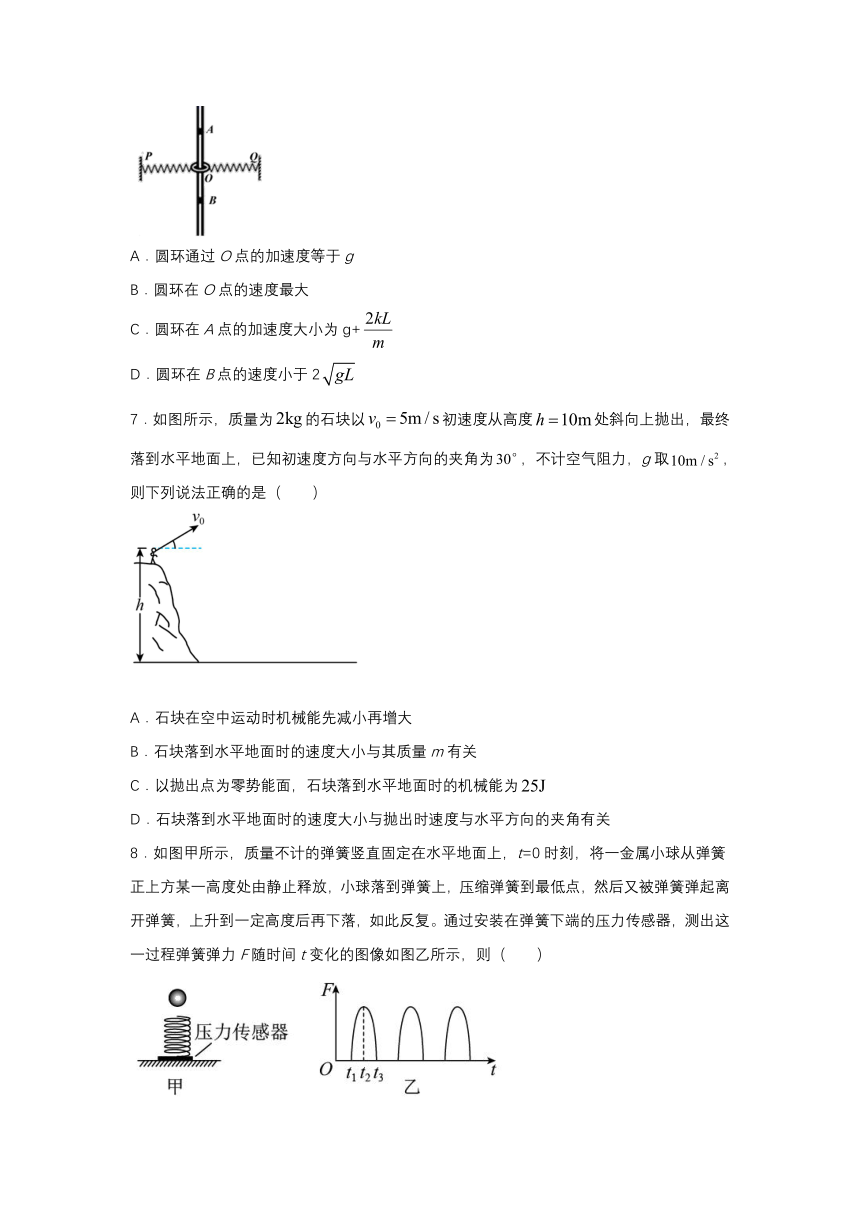 A
P
Q
O
B
A．圆环通过O点的加速度等于g
B．圆环在O点的速度最大
C．圆环在A点的加速度大小为 g+$\frac{2kL}{m}$
D．圆环在B点的速度小于 2$\sqrt{gL}$
7．如图所示，质量为2kg的石块以$v_0=5m/s$初速度从高度$h=10m$处斜向上抛出，最终
落到水平地面上，已知初速度方向与水平方向的夹角为30°，不计空气阻力，g取$10m/s^2$，
则下列说法正确的是（　　）
$v_0$
h
A．石块在空中运动时机械能先减小再增大
B．石块落到水平地面时的速度大小与其质量m有关
C．以抛出点为零势能面，石块落到水平地面时的机械能为25J
D．石块落到水平地面时的速度大小与抛出时速度与水平方向的夹角有关
8．如图甲所示，质量不计的弹簧竖直固定在水平地面上，t=0时刻，将一金属小球从弹簧
正上方某一高度处由静止释放，小球落到弹簧上，压缩弹簧到最低点，然后又被弹簧弹起离
开弹簧，上升到一定高度后再下落，如此反复。通过安装在弹簧下端的压力传感器，测出这
一过程弹簧弹力F随时间t变化的图像如图乙所示，则（　　）
压力传感器
甲
F
O $t_1$ $t_2$ $t_3$ t
乙